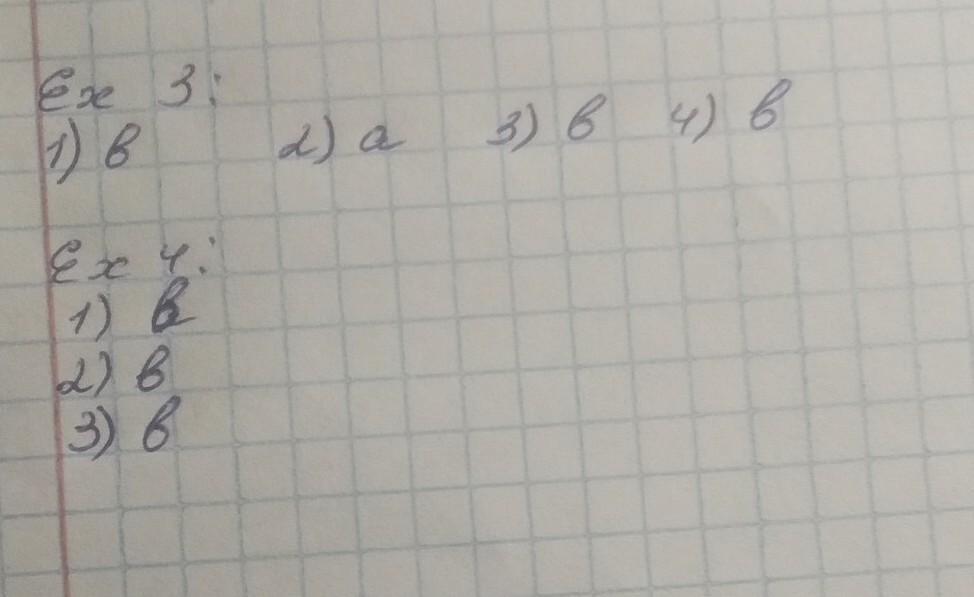 Ex 3:
1) b 2) a 3) b 4) b
Ex 4:
1)
2) b
3) b